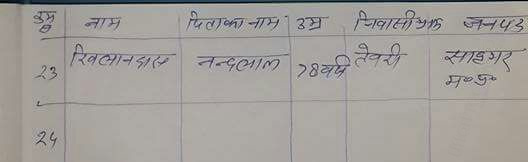 क्रम नाम पिता का नाम उम्र निवासी ग्राम जनपद
23 खिलानदास नन्दलाल 78 वर्ष तेवरी सागर
म०प्र०
24